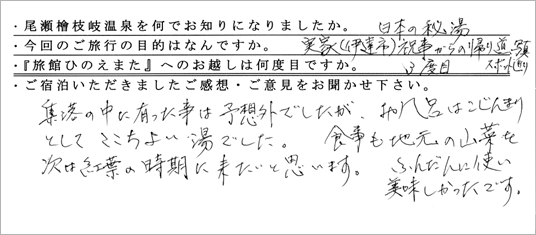 ・尾瀬檜枝岐温泉を何でお知りになりましたか。 日本の秘湯
・今回のご旅行の目的はなんですか。 実家(伊達市)祝事からの帰り道
スポット
・『旅館ひのえまた』へのお越しは何度目ですか。 3度目
・ご宿泊いただきましたご感想・ご意見をお聞かせ下さい。
集落の中に有った事は予想外でしたが、お風呂はこじんまり
としてここちよい湯でした。 食事も地元の山菜を
次は紅葉の時期に来たいと思います。 ふんだんに使い
美味しかったです。